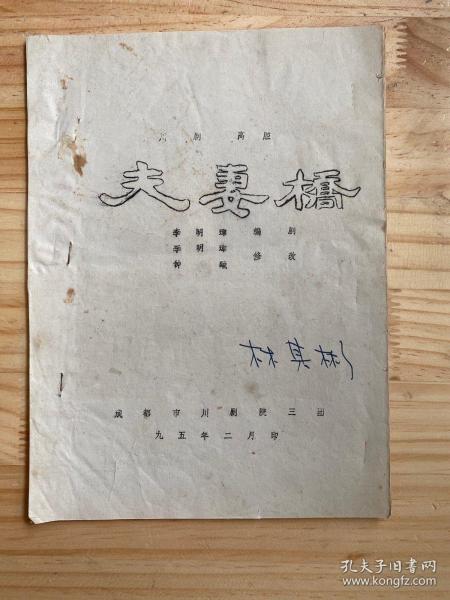 川剧高腔
夫妻橋
李明璋 编剧
李明璋
钟琉 修改
成都市川剧院三团
九五年二月印
孔夫子旧书网
www.kongfz.com